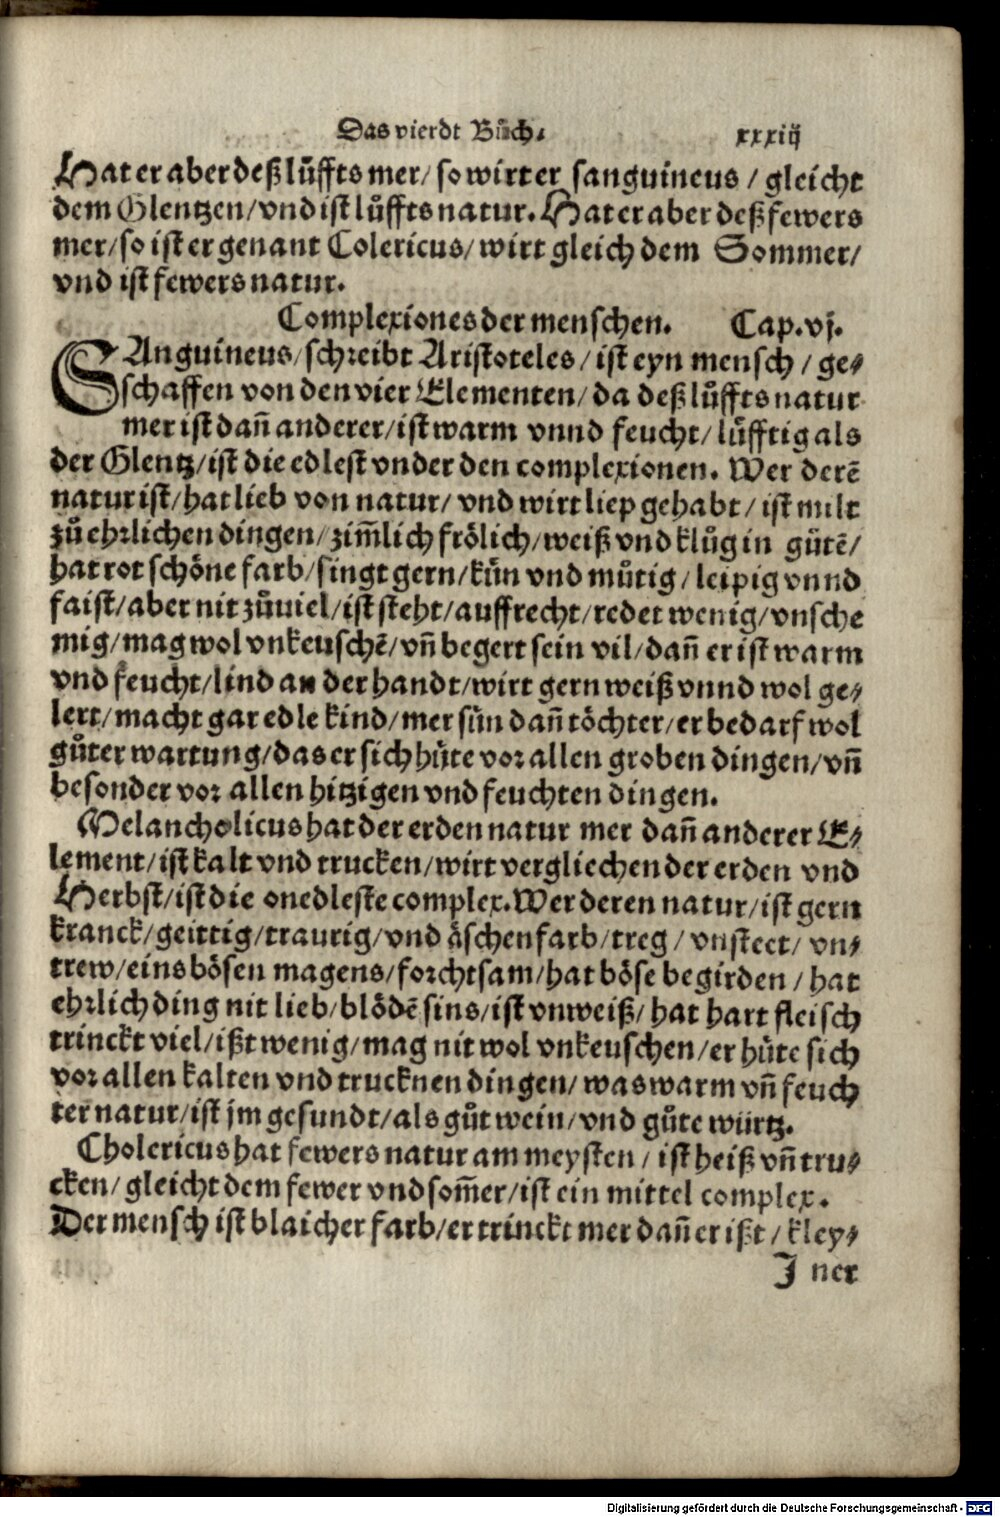 Das vierdt Bůch. xxxiij
Hat er aber deß lůffts mer/ so wirt er sanguineus / gleicht
dem Glentzen/vnd ist lůffts natur. Hat er aber deß fewers
mer/so ist er genant Colericus/wirt gleich dem Sommer/
vnd ist fewers natur.
Complexiones der menschen. Cap.vj.
SAnguineus/schreibt Aristoteles/ist eyn mensch / ge⸗
schaffen von den vier Elementen/da deß lůffts natur
mer ist dañ anderer/ist warm vnnd feucht/lůfftig als
der Glentz/ist die edlest vnder den complexionen. Wer derē
natur ist/hat lieb von natur/ vnd wirt liep gehabt/ ist milt
zů ehrlichen dingen/zim̄lich frölich/weiß vnd klůg in gůtē/
hat rot schöne farb/singt gern/kün vnd můtig/leipig vnnd
faist/aber nit zůuiel/ist steht/auffrecht/redet wenig/vnsche
mig/mag wol vnkeuschē/vñ begert sein vil/dañ er ist warm
vnd feucht/lind an der handt/wirt gern weiß vnnd wol ge⸗
lert/macht gar edle kind/mer sün dañ töchter/er bedarf wol
gůter wartung/das er sich hüte vor allen groben dingen/vñ
besonder vor allen hitzigen vnd feuchten dingen.
Melancholicus hat der erden natur mer dañ anderer E⸗
lement/ist kalt vnd trucken/wirt vergliechen der erden vnd
Herbst/ist die onedleste complex. Wer deren natur/ist gern
kranck/geittig/traurig/vnd äschenfarb/treg/vnsteet/ vn⸗
trew/eins bösen magens/forchtsam/hat böse begirden / hat
ehrlich ding nit lieb/blödē sins/ist vnweiß/ hat hart fleisch
trinckt viel/ißt wenig/mag nit wol vnkeuschen/er hüte sich
vor allen kalten vnd trucknen dingen/was warm vñ feuch
ter natur/ist jm gesundt/als gůt wein/vnd gůte würtz.
Cholericus hat fewers natur am meysten/ ist heiß vñ tru⸗
cken/ gleicht dem fewer vnd som̄er/ist ein mittel complex.
Der mensch ist blaicher farb/er trinckt mer dañ er ißt / kley⸗
J ner
Digitalisierung gefördert durch die Deutsche Forschungsgemeinschaft - DFG